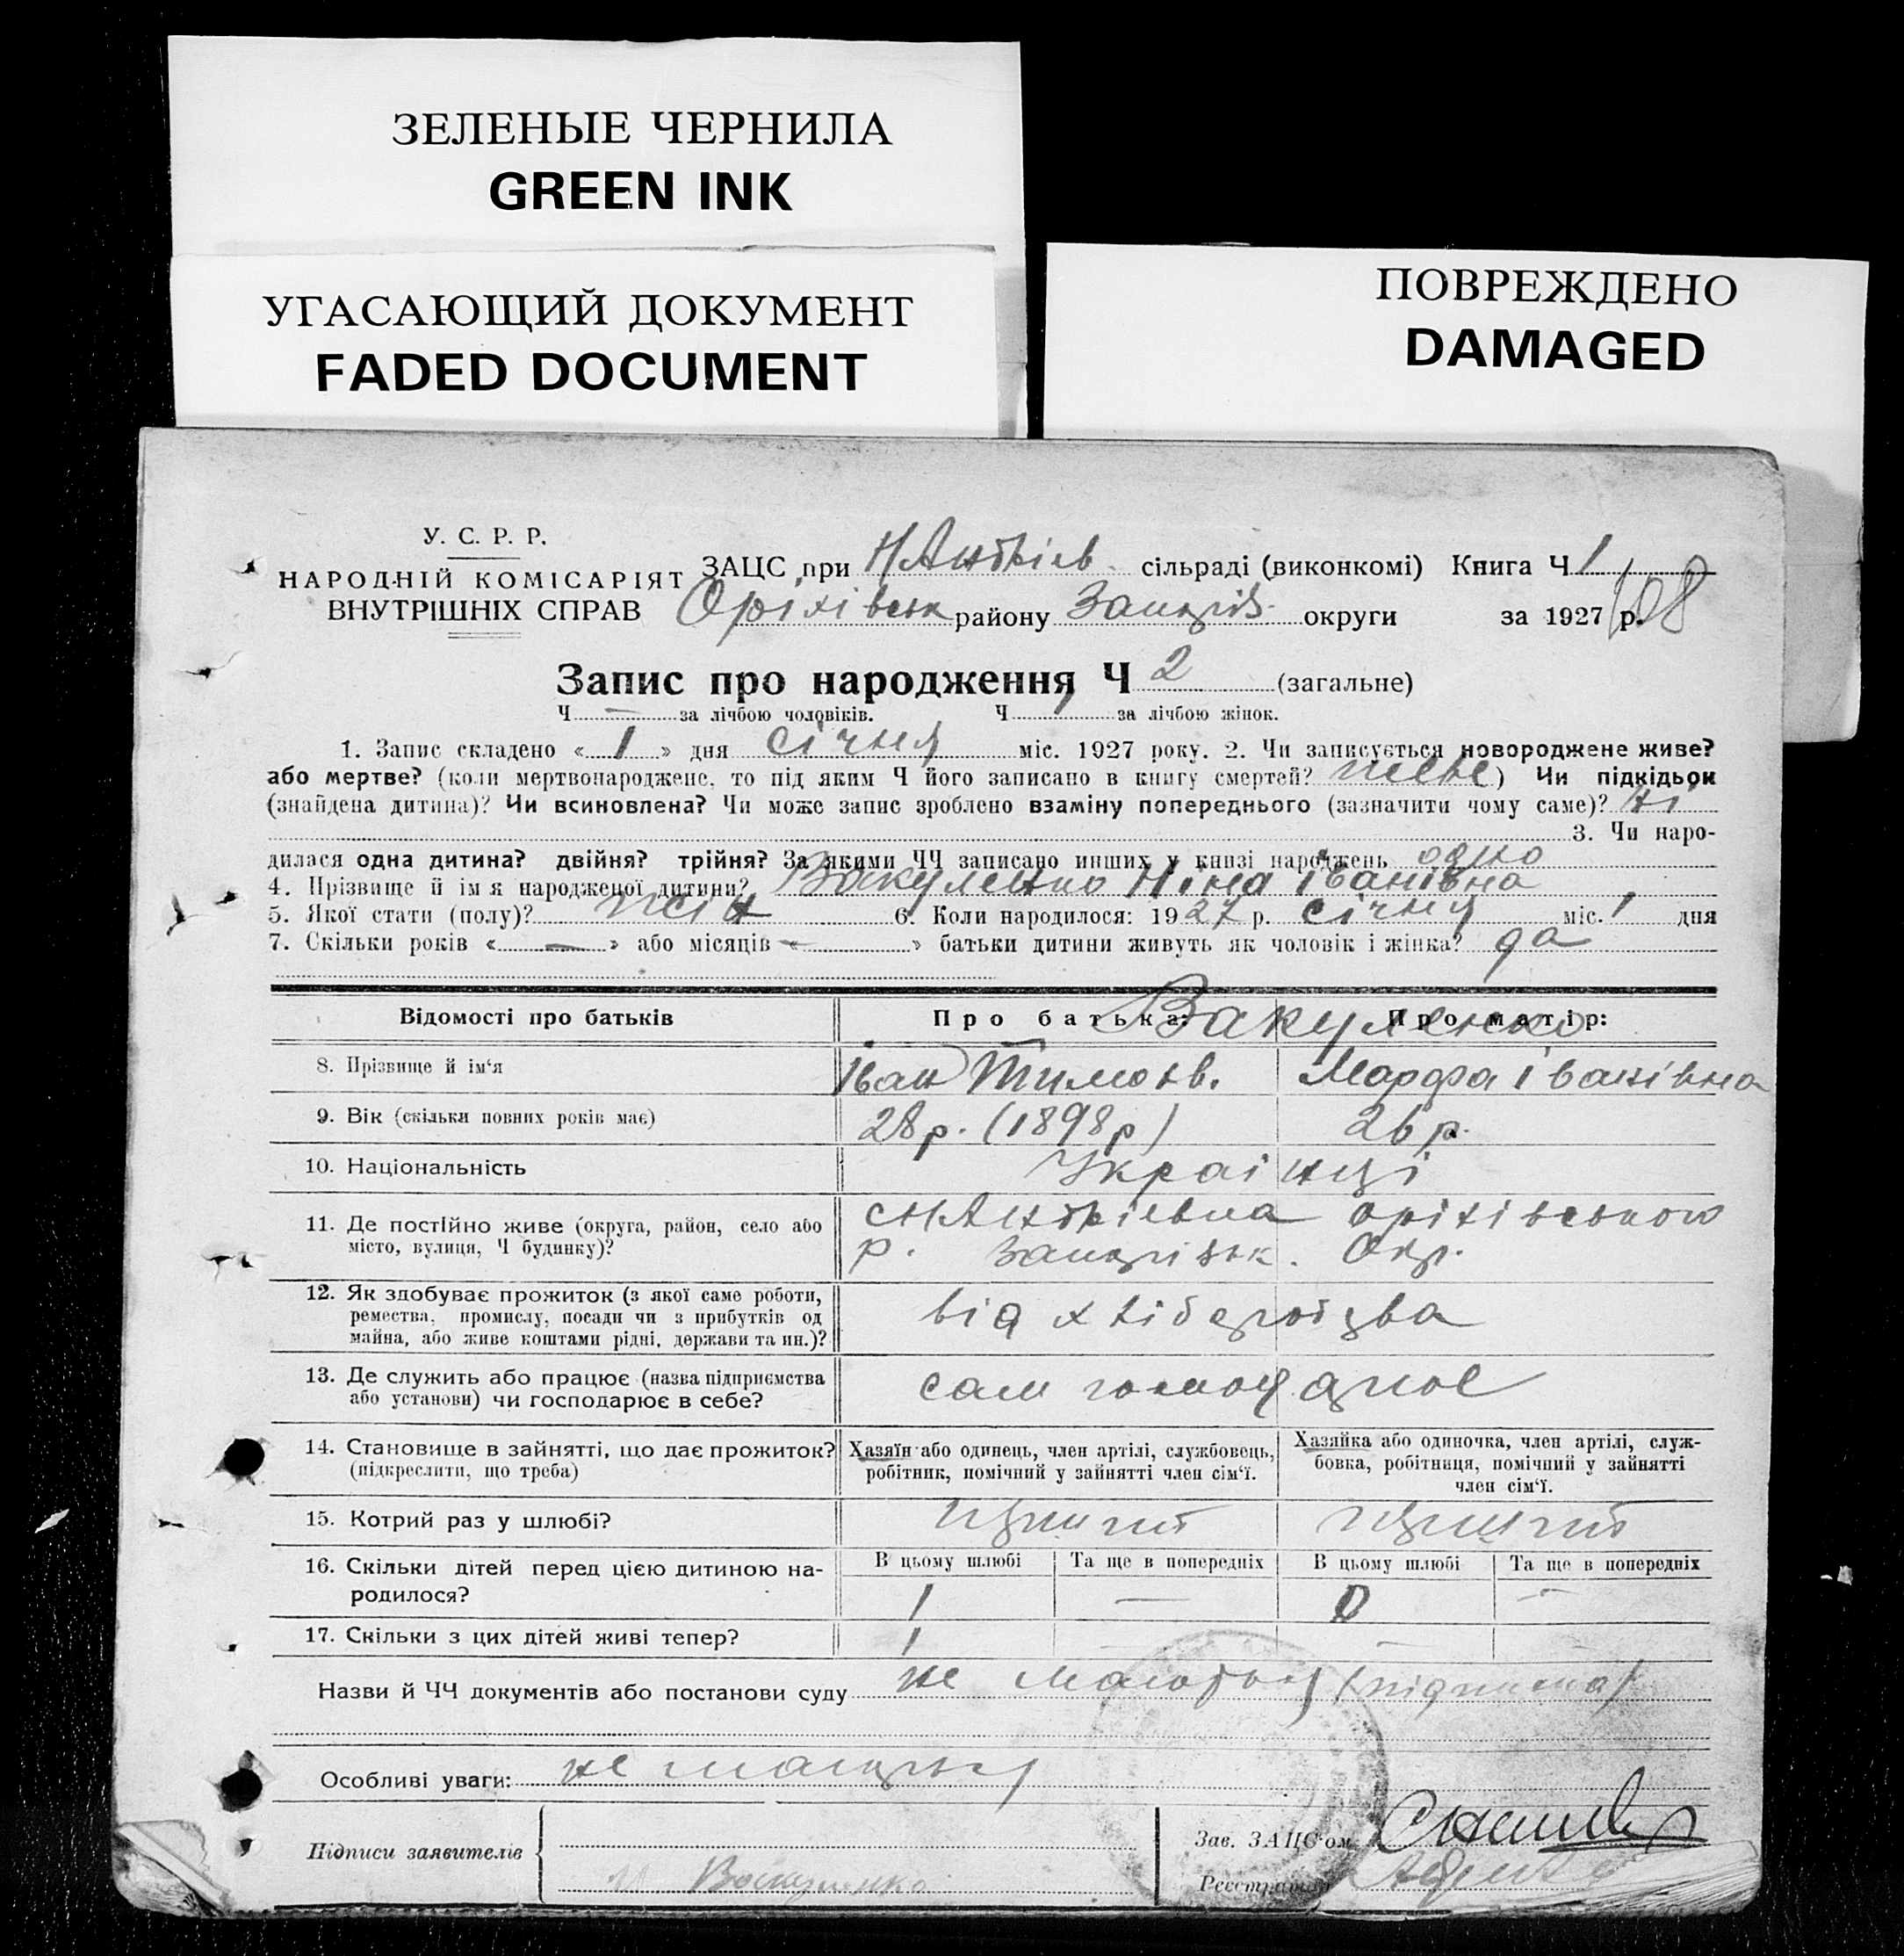 ЗЕЛЕНЫЕ ЧЕРНИЛА
GREEN INK
УГАСАЮЩИЙ ДОКУМЕНТ
FADED DOCUMENT
ПОВРЕЖДЕНО
DAMAGED
У. С. Р. Р.
НАРОДНІЙ КОМІСАРІЯТ
ВНУТРІШНІХ СПРАВ
ЗАЦС при Н Андріїв сільраді (виконкомі) Книга Ч 1
Оріхівськ району Запоріз. округи за 1927 р. 108
Запис про народження Ч 2 (загальне)
Ч — за лічбою чоловіків. Ч 1 за лічбою жінок.
1. Запис складено « 1 » дня січня міс. 1927 року. 2. Чи записується новороджене живе?
або мертве? (коли мертвонароджене, то під яким Ч його записано в книгу смертей? живе) Чи підкідьок
(знайдена дитина)? Чи всиновлена? Чи може запис зроблено взаміну попереднього (зазначити чому саме)? ні
3. Чи наро-
дилася одна дитина? двійня? трійня? За якими ЧЧ записано инших у книзі народжень одно
4. Прізвище й ім'я народженої дитини? Вакуленко Ніна Іванівна
5. Якої стати (полу)? жін 6. Коли народилося: 1927 р. січня міс. 1 дня
7. Скільки років « — » або місяців « — » батьки дитини живуть як чоловік і жінка? да
Відомості про батьків Про батька: Про матір:
Вакуленко
8. Прізвище й ім'я Іван Тимохв. Марфа Іванівна
9. Вік (скільки повних років має) 28 р. (1898р) 26 р.
10. Національність Українці
11. Де постійно живе (округа, район, село або
місто, вулиця, Ч будинку)?
с Н Андріївка Оріхівського
р. Запорізьк. Окр.
12. Як здобуває прожиток (з якої саме роботи,
ремества, промислу, посади чи з прибутків од
майна, або живе коштами рідні, держави та ин.)?
від хліборобства
13. Де служить або працює (назва підприємства
або установи) чи господарює в себе?
сам
14. Становище в зайнятті, що дає прожиток?
(підкреслити, що треба)
Хазяїн або одинець, член артілі, службовець,
робітник, помічний у зайнятті член сім'ї.
Хазяйка або одиночка, член артілі, служ-
бовка, робітниця, помічний у зайнятті
член сім'ї.
15. Котрий раз у шлюбі?
16. Скільки дітей перед цією дитиною на-
родилося?
В цьому шлюбі Та ще в попередніх В цьому шлюбі Та ще в попередніх
1 — 0 —
17. Скільки з цих дітей живі тепер? 1 — — —
Назви й ЧЧ документів або постанови суду не
Особливі уваги: не
Підписи заявителів
Вакуленко
Зав. ЗАЦС'ом
Реєстратор